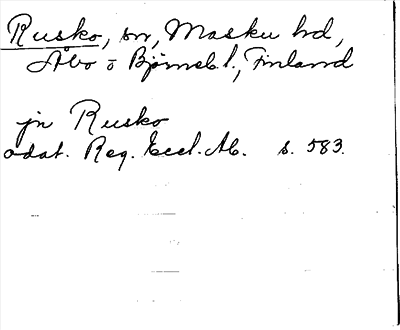 Rusko, sn, Masku hd,
Åbo o Björneb. l., Finland
jn Rusko
odat. Reg. Eccl. Ab. s. 583.